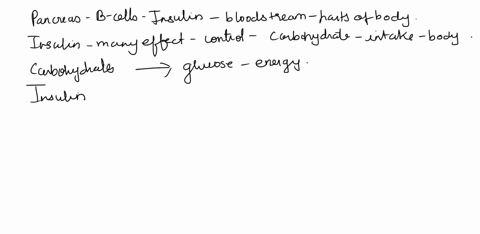 Pancreas - B-cells - Insulin - bloodstream - parts of body.
Insulin - many effect - control - Carbohydrate - intake - body.
Carbohydrates → glucose - energy.
Insulin